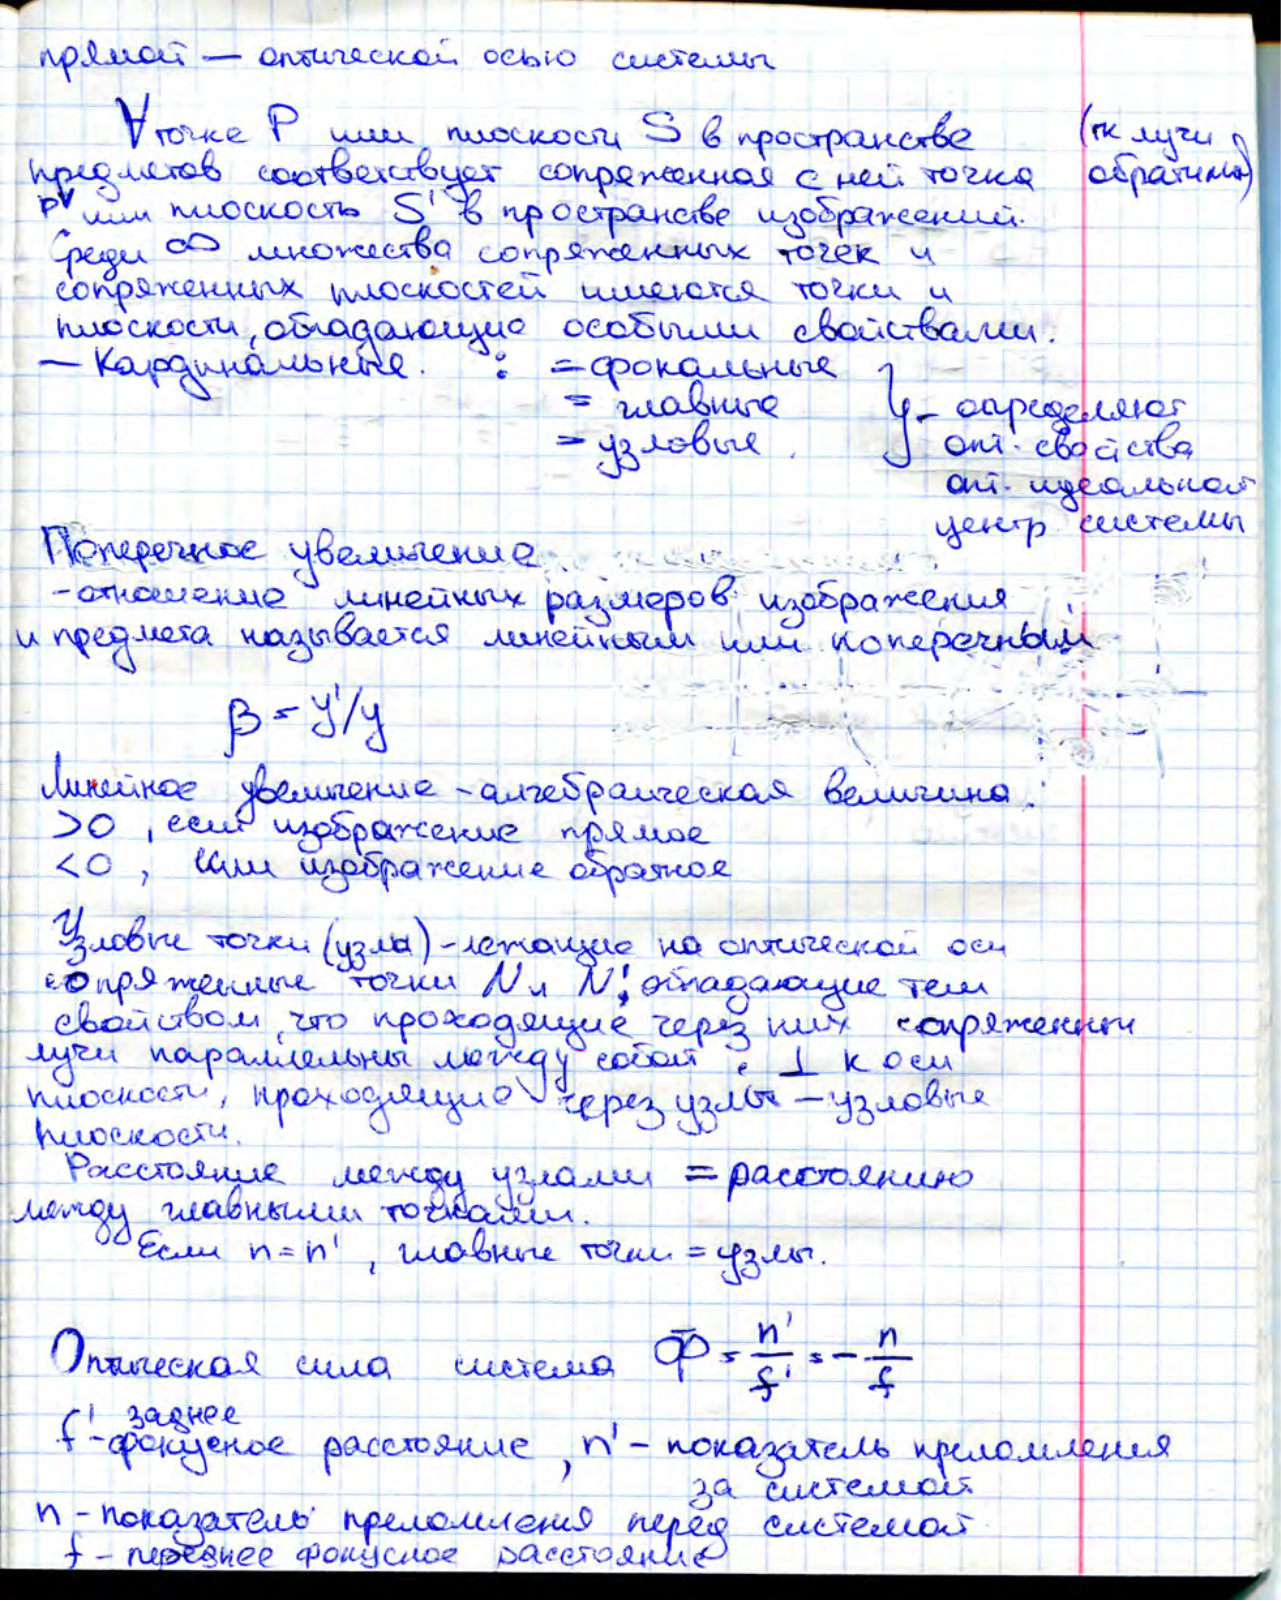 прямой — оптической осью системы
∀ точке P или плоскости S в пространстве (тк лучи
предметов соответствует сопряженная с ней точка обратимы)
P' или плоскость S' в пространстве изображений.
Среди ∞ множества сопряженных точек и
сопряженных плоскостей имеются точки и
плоскости, обладающие особыми свойствами.
— Кардинальные. : = фокальные
= главные } - определяют
= узловые. опт. свойства
опт. идеальной
центр системы
Поперечное увеличение
- отношение линейных размеров изображения
и предмета называется линейным или поперечным
β = y'/y
Линейное увеличение - алгебраическая величина:
>0, если изображение прямое
<0, или изображение обратное
Узловые точки (узлы) - лежащие на оптической оси
сопряженные точки N и N', обладающие тем
свойством, что проходящие через них сопряженны
лучи параллельны между собой; ⊥ к оси
плоскости, проходящие через узлы — узловые
плоскости.
Расстояние между узлами = расстоянию
между главными точками.
Если n = n', главные точки = узлы.
Оптическая сила система Ф = n'/f' = - n/f
f' - заднее фокусное расстояние, n' - показатель преломления
за системой
n - показатель преломления перед системой
f - переднее фокусное расстояние